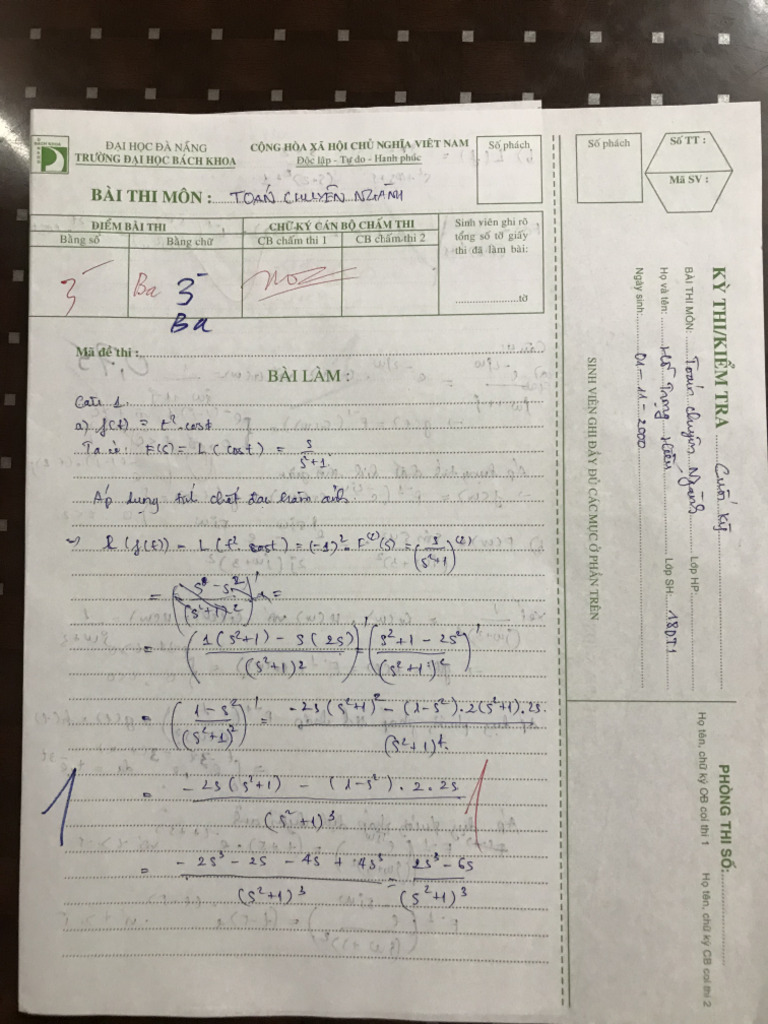 ĐẠI HỌC ĐÀ NẴNG
TRƯỜNG ĐẠI HỌC BÁCH KHOA
CỘNG HÒA XÃ HỘI CHỦ NGHĨA VIỆT NAM
Độc lập - Tự do - Hạnh phúc
Số phách
BÀI THI MÔN : TOÁN CHUYÊN NGÀNH
ĐIỂM BÀI THI
CHỮ KÝ CÁN BỘ CHẤM THI
Bằng số
Bằng chữ
CB chấm thi 1
CB chấm thi 2
Sinh viên ghi rõ
tổng số tờ giấy
thi đã làm bài:
...tờ
3
Ba 3
Ba
Mã đề thi :
BÀI LÀM :
Câu 1.
a) f(t) = t². cost
Ta có: F(s) = L(cost) = s/(s²+1)
Áp dụng tính chất đạo hàm ảnh
=> L(f(t)) = L(t² cost) = (-1)². F⁽²⁾(s) = (s/(s²+1))⁽²⁾
= (1(s²+1) - s(2s)/(s²+1)²)' = (s²+1 - 2s²/(s²+1)²)'
= (1-s²/(s²+1)²)' = -2s(s²+1)² - (1-s²).2(s²+1).2s/(s²+1)⁴
= -2s(s²+1) - (1-s²).2.2s/(s²+1)³
= -2s³ - 2s - 4s + 4s³/(s²+1)³ = 2s³ - 6s/(s²+1)³
1
1
Số phách
Số TT :
Mã SV :
KỲ THI/KIỂM TRA Cuối kỳ
BÀI THI MÔN: Toán chuyên Ngành Lớp HP:
Họ và tên: Hồ Trọng Hiếu Lớp SH: 18DT1
Ngày sinh: 01-11-2000
SINH VIÊN GHI ĐẦY ĐỦ CÁC MỤC Ở PHẦN TRÊN
PHÒNG THI SỐ:
Họ tên, chữ ký CB coi thi 1
Họ tên, chữ ký CB coi thi 2